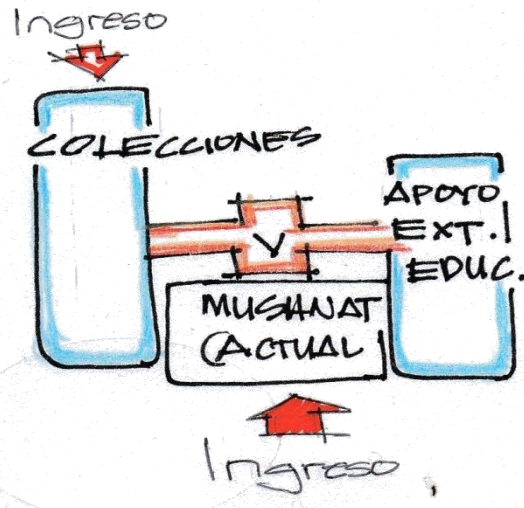 Ingreso
COLECCIONES
APOYO
EXT. |
EDUC.
V
MUSHNAT
(ACTUAL
Ingreso